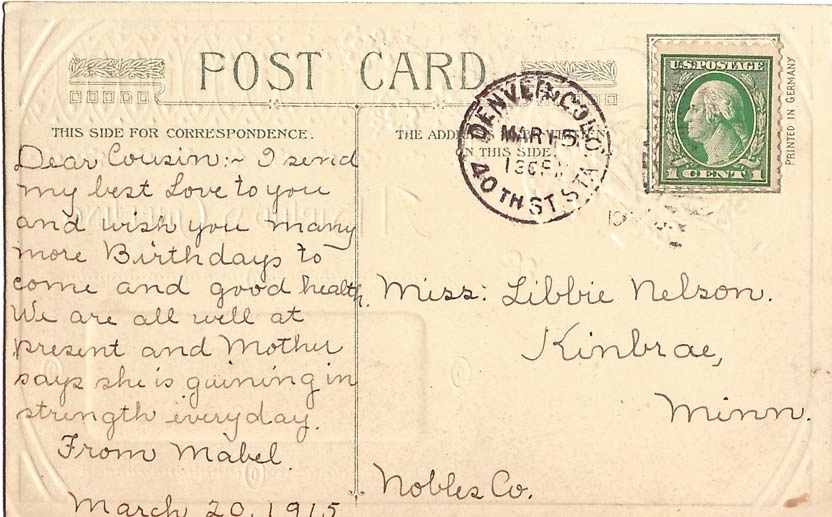 POST CARD
THIS SIDE FOR CORRESPONDENCE.
Dear Cousin:~ I send
my best Love to you
and wish you many
more Birthdays to
come and good health.
We are all well at
present and Mother
says she is guining in
strength everyday.
From Mabel.
March 20, 1915
THE ADDRESS
ON THIS SIDE
DENVER, COLO.
MAR 15
40TH ST. STA.
U.S. POSTAGE
1 CENT 1
PRINTED IN GERMANY
Miss: Libbie Nelson.
Kinbrae,
Minn.
Nobles Co.